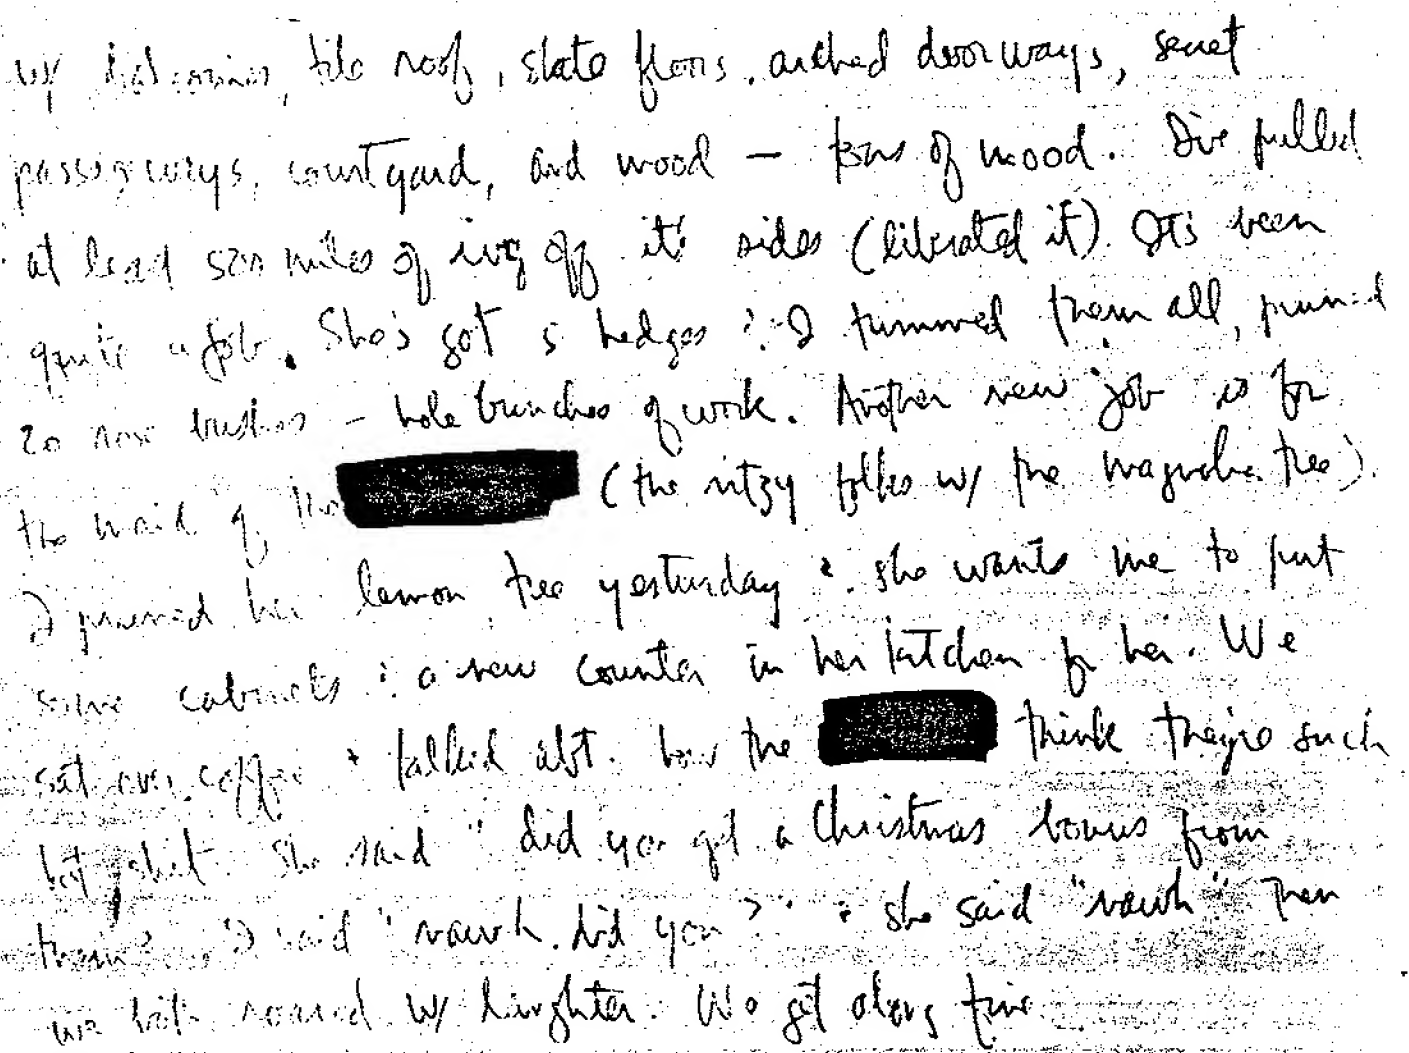 w/ balconies, tile roof, slate floors, arched doorways, secret
passageways, courtyard, and wood — tons of wood. I've pulled
at least 500 miles of ivy off it's sides (liberated it). It's been
quite a job. She's got 5 hedges & I trimmed them all, pruned
20 rose bushes — hole bunches of work. Another new job is for
the maid of the (the ritzy folks w/ the magnolia tree).
I pruned her lemon tree yesturday & she wants me to put
some cabinets & a new counter in her kitchen for her. We
sat over coffee & talked abt. how the think they're such
hot shit. She said "did you get a Christmas bonus from
them?" I said "nawh, did you?" & she said "nawh" Then
we both roared w/ laughter. We get along fine